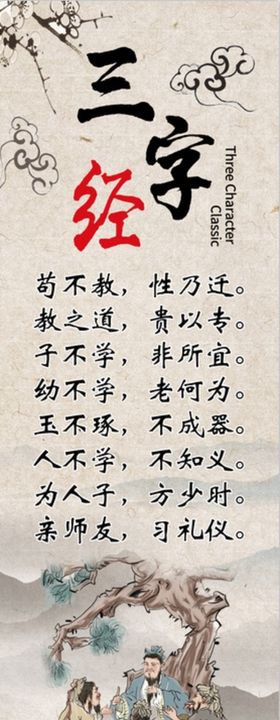 三字经
Three Character
Classic
苟不教，性乃迁。
教之道，贵以专。
子不学，非所宜。
幼不学，老何为。
玉不琢，不成器。
人不学，不知义。
为人子，方少时。
亲师友，习礼仪。